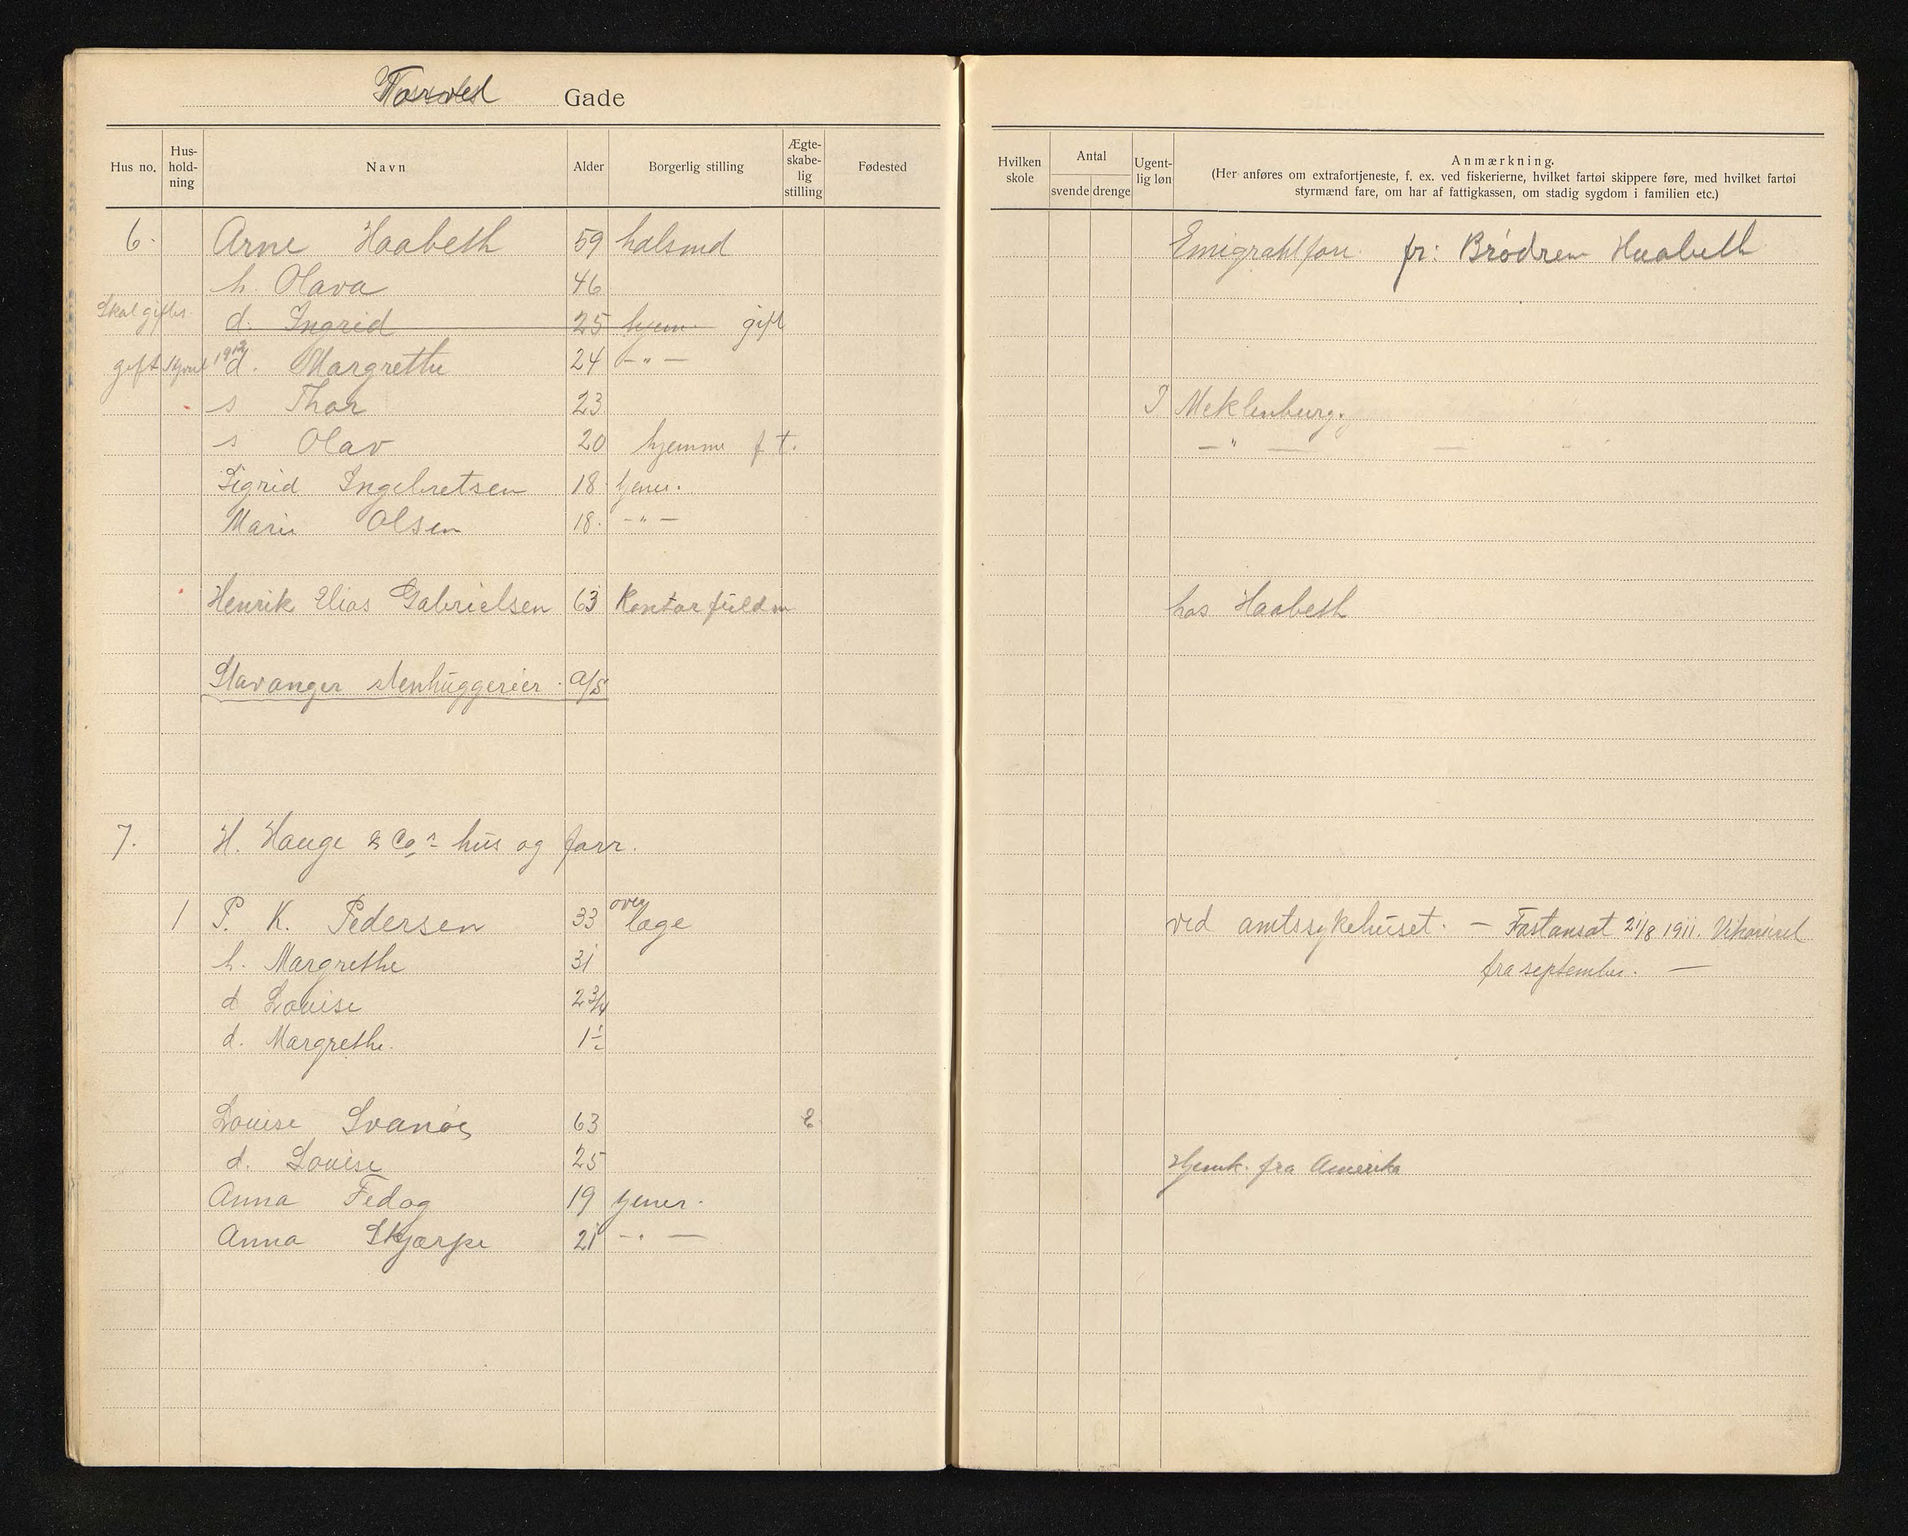 Torvet Gade
Hus no. Hus-holdning Navn Alder Borgerlig stilling Ægte-skabe-lig stilling Fødested Hvilken skole Antal svende drenge Ugent-lig løn Anmærkning.
(Her anføres om extrafortjeneste, f. ex. ved fiskerierne, hvilket fartøi skippere føre, med hvilket fartøi
styrmænd fare, om har af fattigkassen, om stadig sygdom i familien etc.)
6. Arne Haabeth 59 fr: Brødrene Haabeth
h. Olava 46
Skal giftes d. Ingrid 25 hjem gift
gift 1912 d. Margrethe 24 -"-
s Thor 23 I Meklenburg.
s Olav 20 hjemme f t. -"-
Sigrid Ingebretsen 18 tjener.
Marie Olsen 18. -"-
Henrik Elias Gabrielsen 63 Kontorfuldm hos Haabeth
Stavanger stenhuggerier a/s
7. H. Hauge & Cos hus og forr.
1 P. K. Pedersen 33 overlæge ved amtssykehuset. — Fastansat 21/8 1911.
h. Margrethe 31 fra september. —
d Louise 2 3/4
d. Margrethe. 1 1/2
Louise Svanøe 63 E
d. Louise 25 Hjemk. fra Amerika
Anna Fedog 19 tjener.
Anna Skjærpe 21 -"-